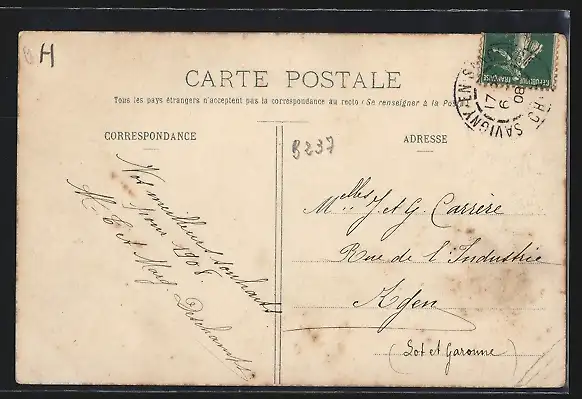 H
CARTE POSTALE
Tous les pays étrangers n'acceptent pas la correspondance au recto (Se renseigner à la Pos
CORRESPONDANCE
ADRESSE
B237
Nos meilleurs souhaits
pour 1908.
M. E et Marg Deschamps
Melles J et G. Carrère
Rue de l'Industrie
Agen
(Lot et Garonne)
REPUBLIQUE FRANÇAISE
SAVIGNY-EN-S
CH
17
9
08